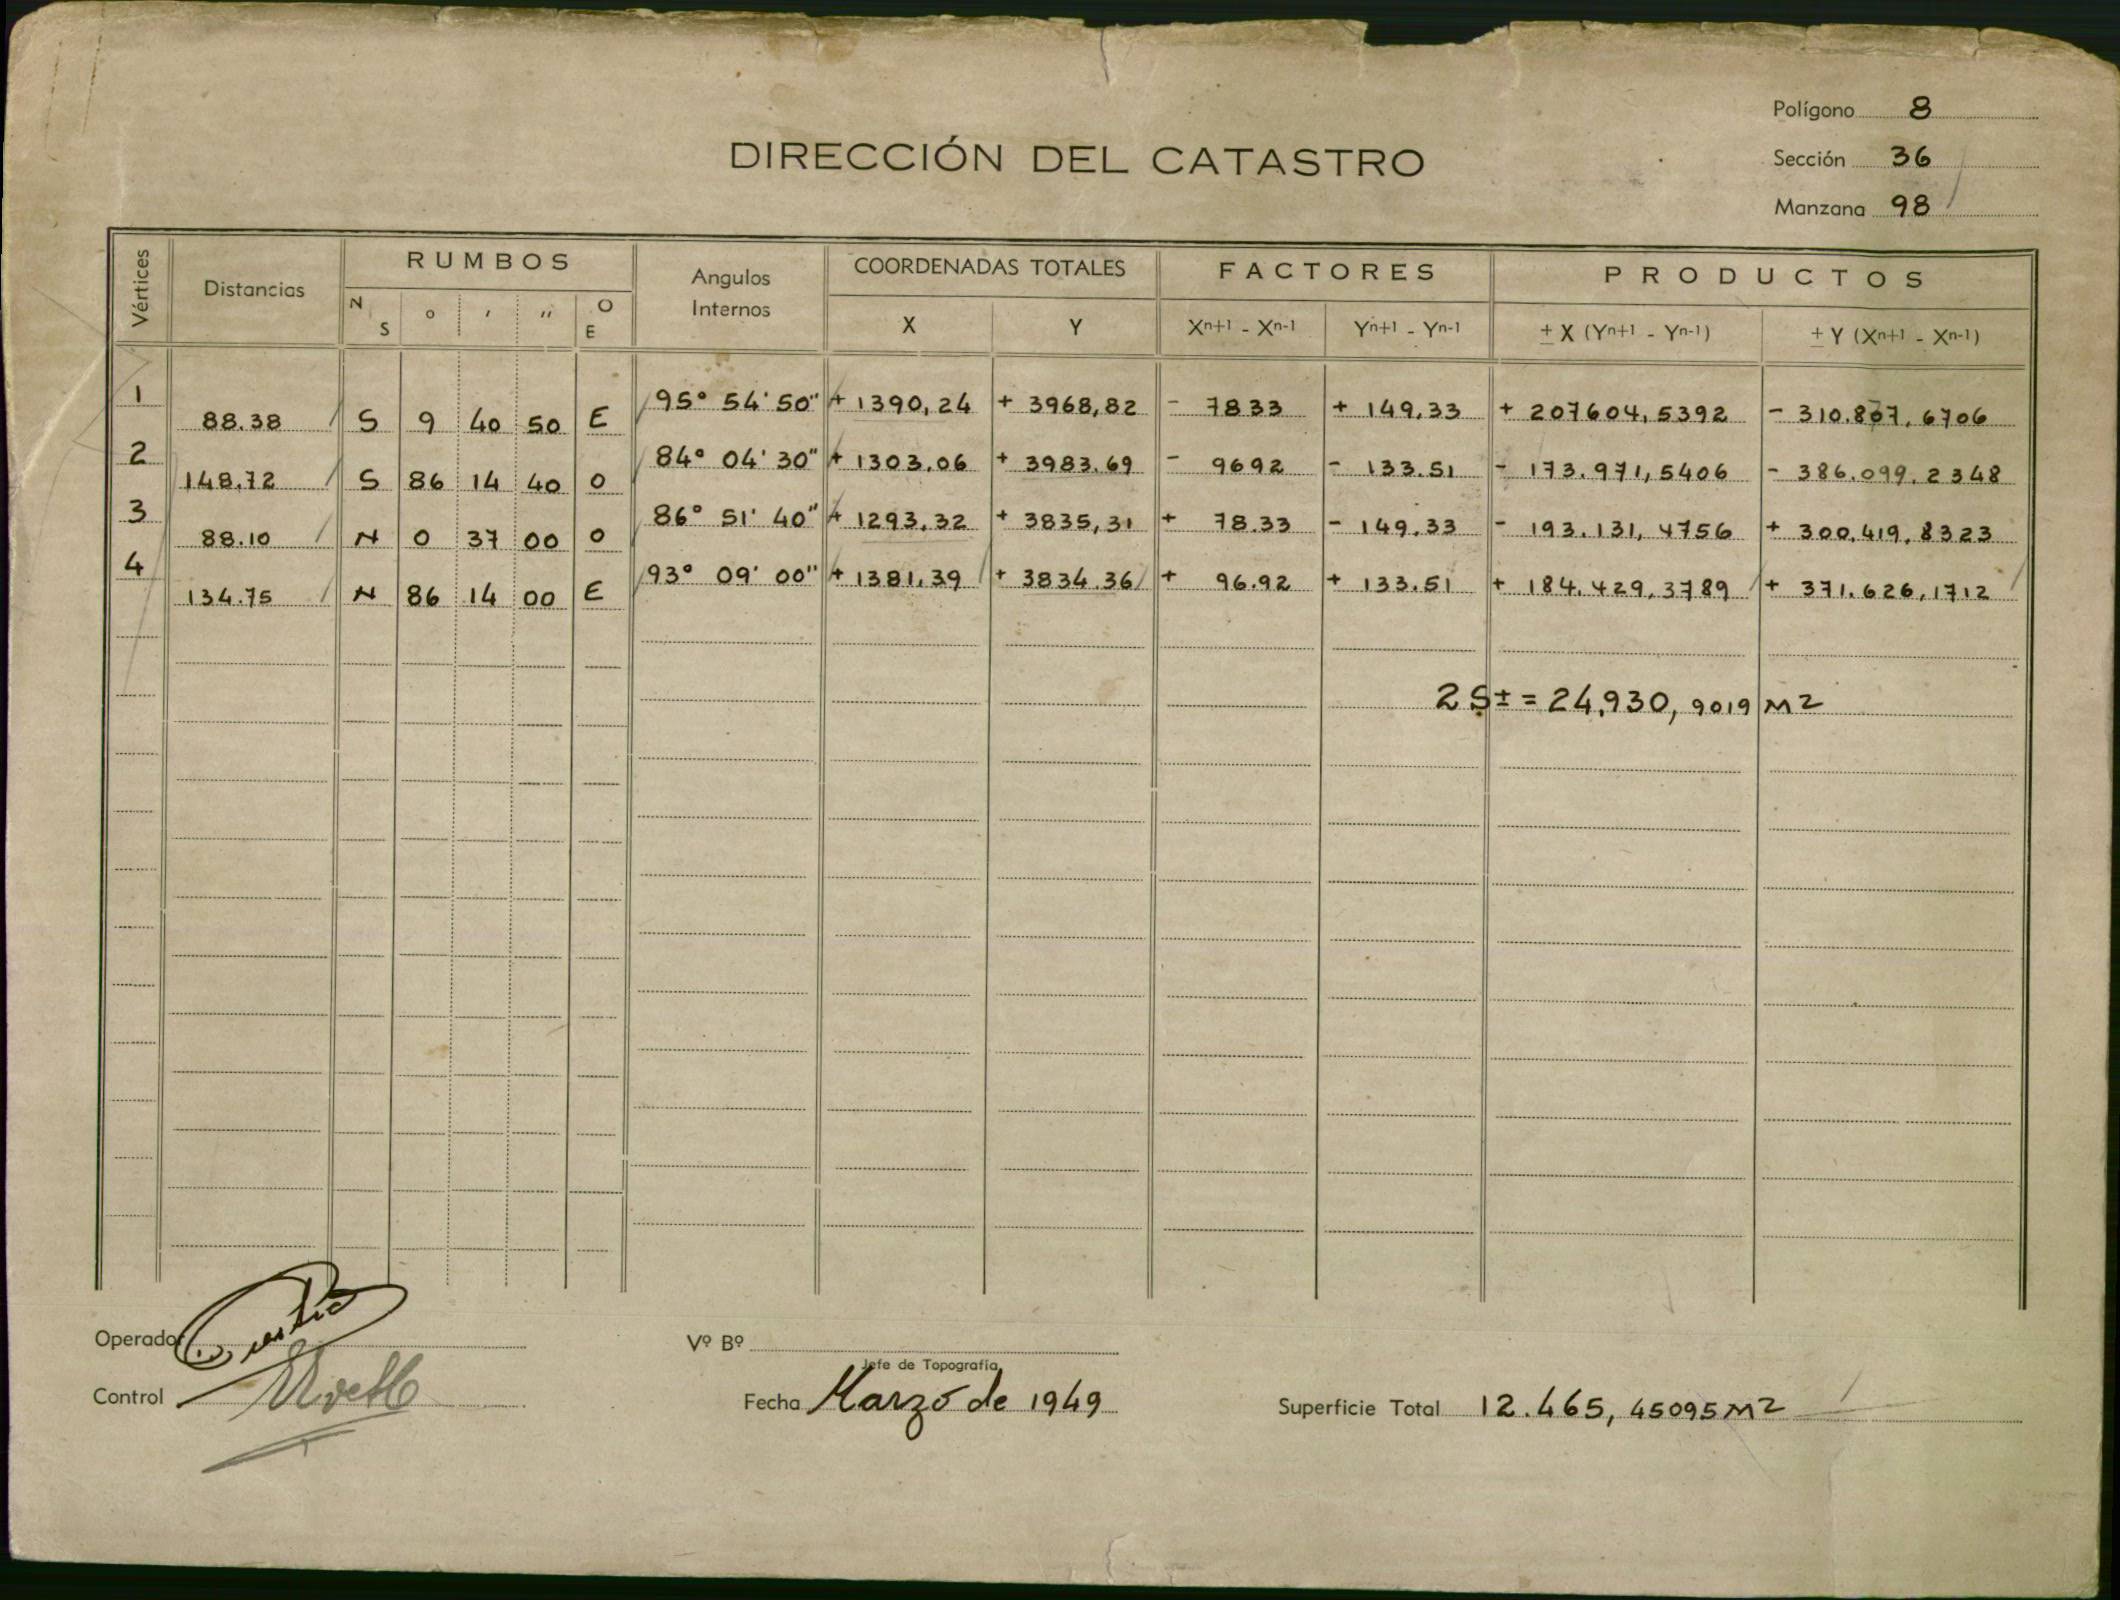 Polígono 8
DIRECCIÓN DEL CATASTRO
Sección 36
Manzana 98
Vértices Distancias RUMBOS Angulos Internos COORDENADAS TOTALES FACTORES PRODUCTOS
N S ° ' '' O E X Y Xn+1 - Xn-1 Yn+1 - Yn-1 ± X (Yn+1 - Yn-1) ± Y (Xn+1 - Xn-1)
1 95° 54' 50" + 1390,24 + 3968,82 - 7833 + 149,33 + 207604,5392 - 310.867,6706
88.38 S 9 40 50 E
2 84° 04' 30" + 1303.06 + 3983.69 - 9692 - 133.51 - 173.971,5406 - 386.099.2348
148.72 S 86 14 40 O
3 86° 51' 40" + 1293,32 + 3835,31 + 78.33 - 149,33 - 193.131,4756 + 300.419,8323
88.10 N 0 37 00 O
4 93° 09' 00" + 1381,39 + 3834.36 + 96.92 + 133.51 + 184.429,3789 + 371.626,1712
134.75 N 86 14 00 E
2 S± = 24,930,9019 M2
Operador
Vº Bº
Jefe de Topografía
Control
Fecha Marzo de 1949
Superficie Total 12.465,45095 M2